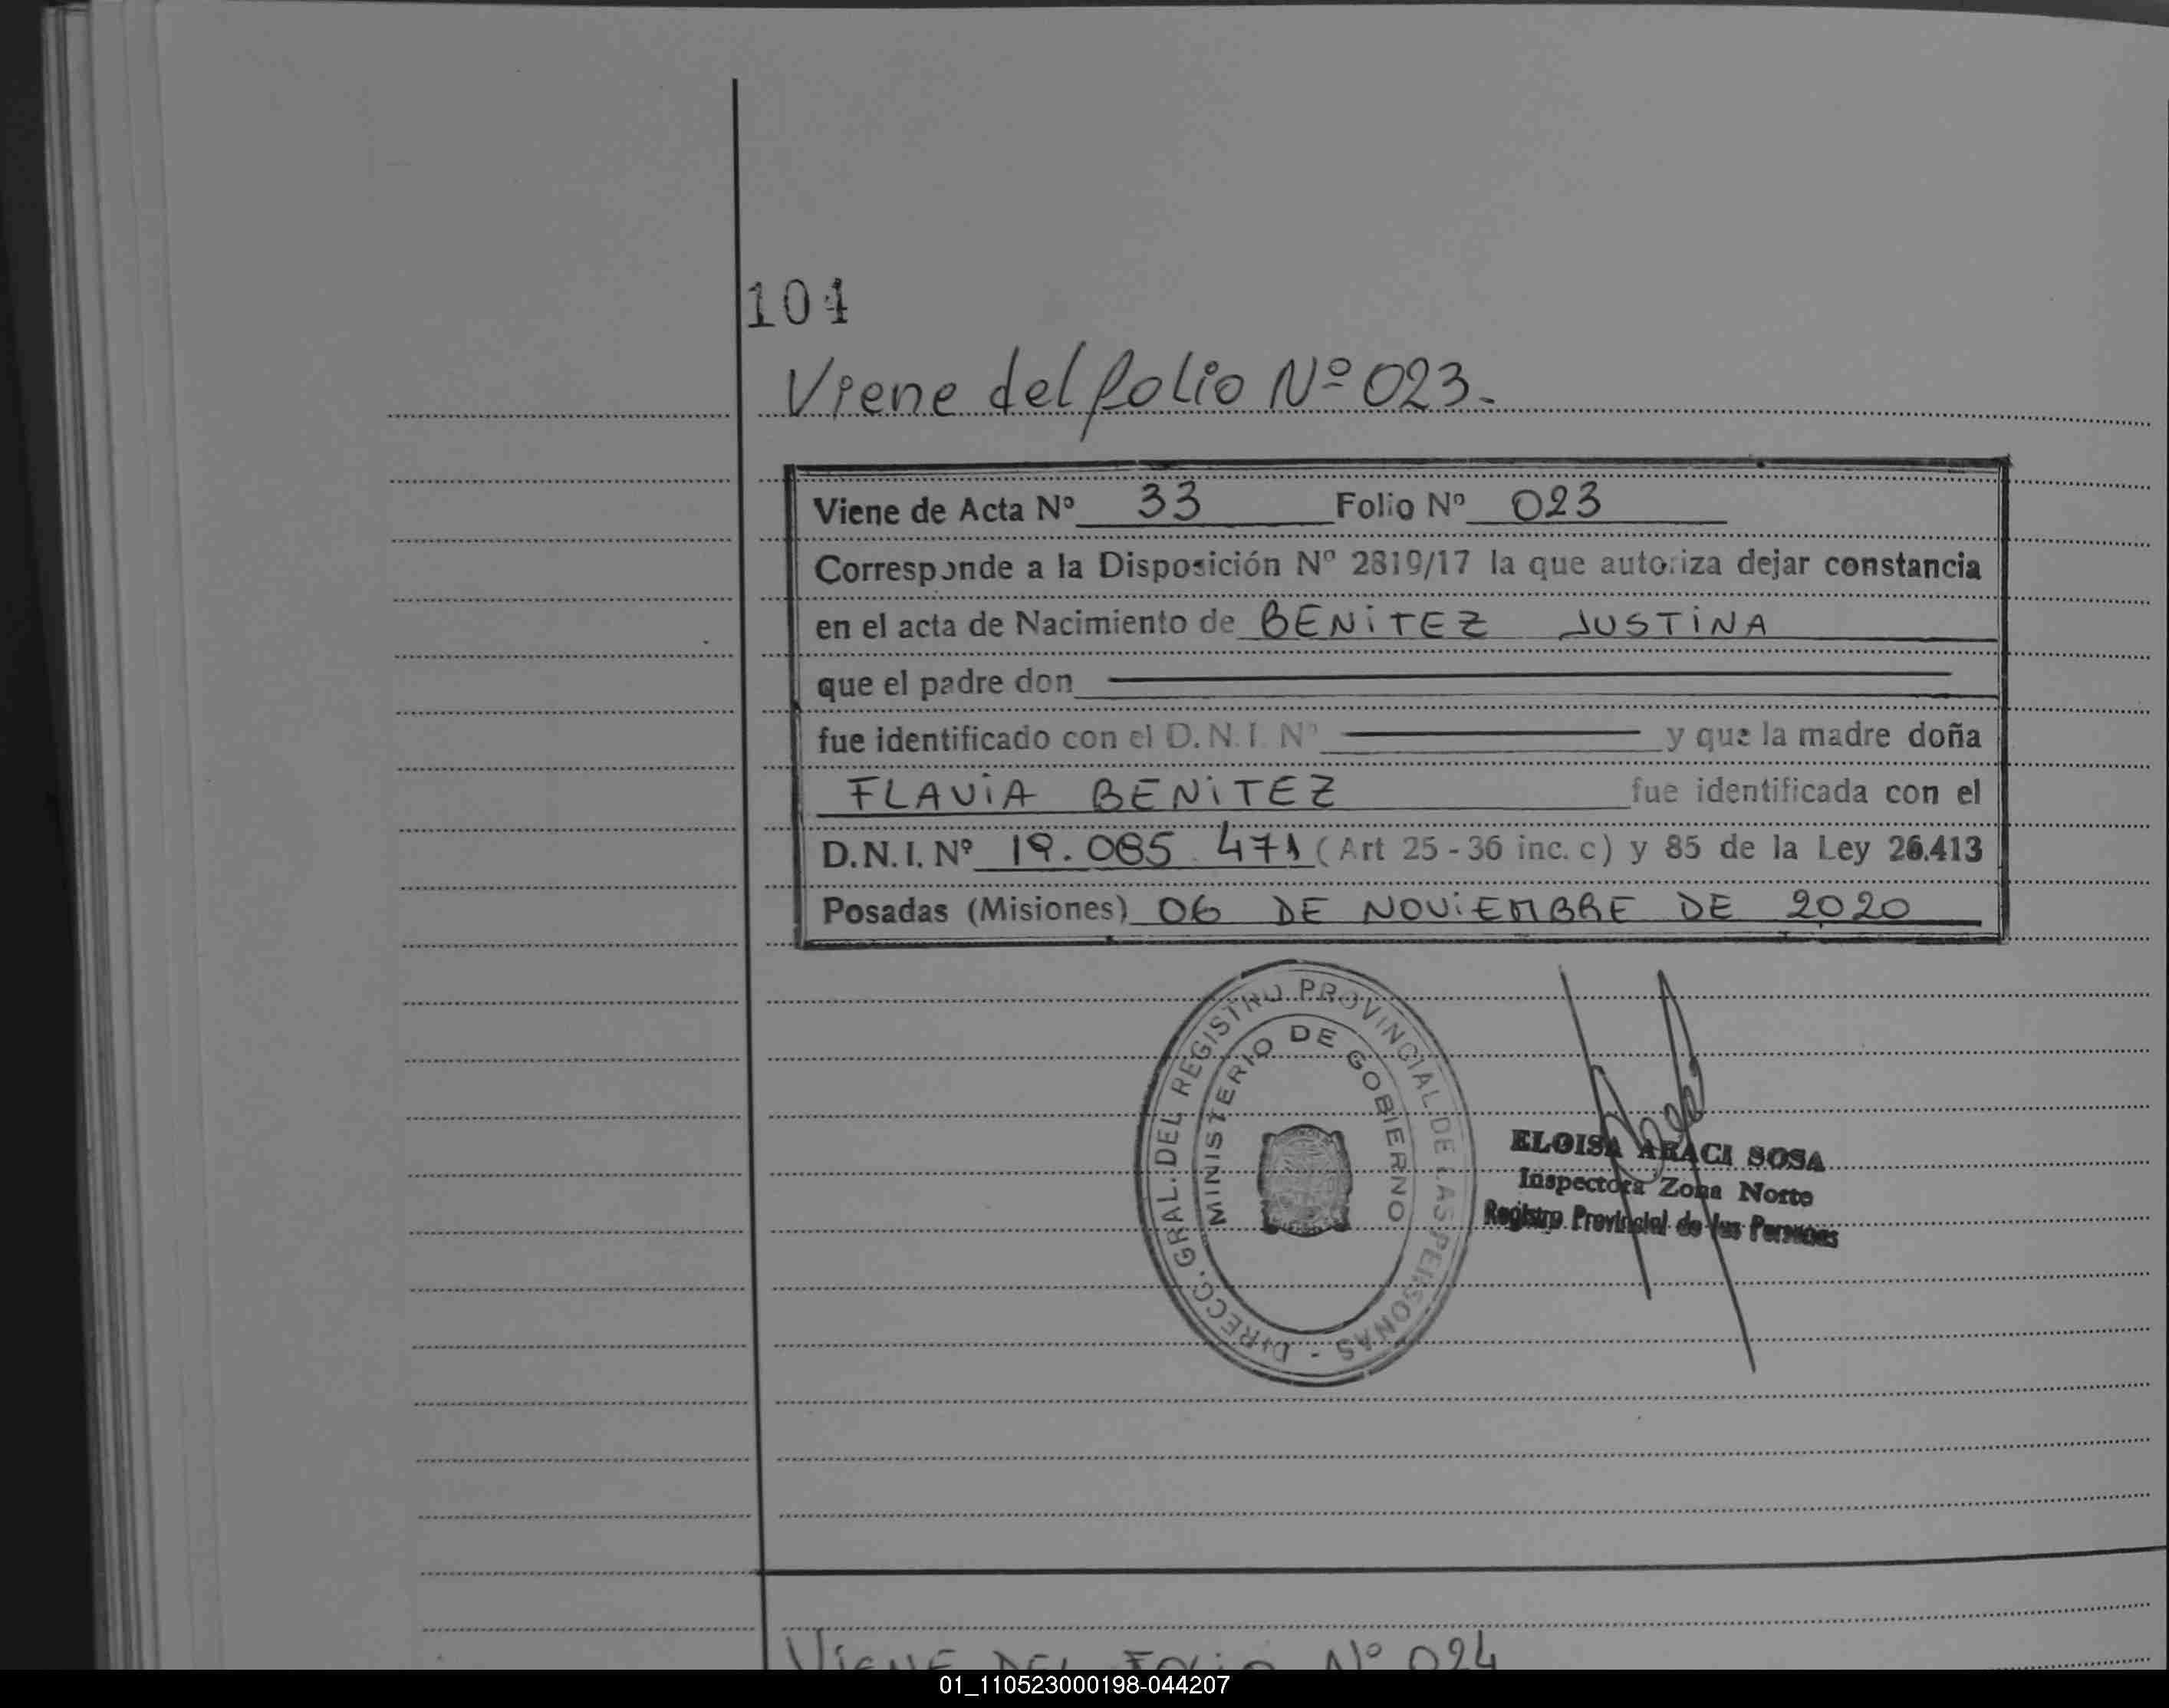 101
Viene del folio Nº 023.
Viene de Acta Nº 33 Folio Nº 023
Corresponde a la Disposición Nº 2819/17 la que autoriza dejar constancia
en el acta de Nacimiento de BENITEZ JUSTINA
que el padre don
fue identificado con el D.N.I. Nº y que la madre doña
FLAVIA BENITEZ fue identificada con el
D.N.I. Nº 19.085.471 (Art 25 - 36 inc. c) y 85 de la Ley 26.413
Posadas (Misiones) 06 DE NOVIEMBRE DE 2020
DIRECC. GRAL. DEL REGISTRO PROVINCIAL DE LAS PERSONAS -
MINISTERIO DE GOBIERNO
ELOISA ARACI SOSA
Inspectora Zona Norte
Registro Provincial de las Personas
VIENE DEL FOLIO Nº 024
01_110523000198-044207